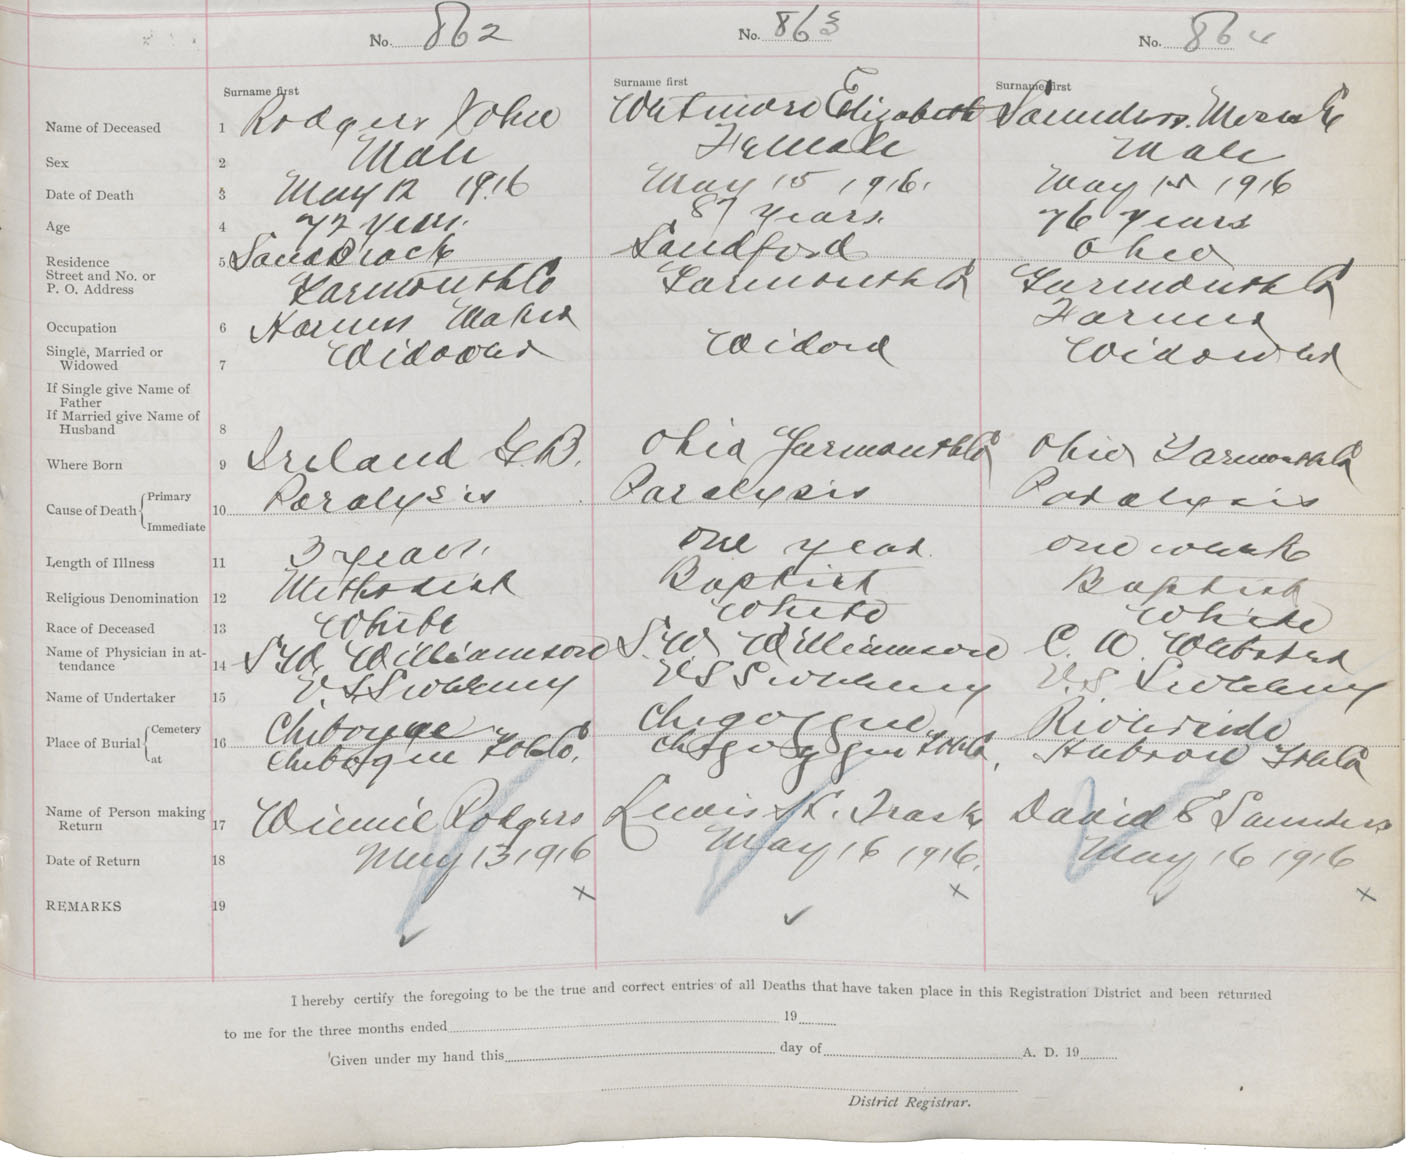 No. 862
No. 863
No. 864
Surname first
Surname first
Surname first
Name of Deceased 1 Rodgers John
Whitmore Elizabeth
Saunders
Sex 2 Male
Female
Male
Date of Death 3 May 12 1916
May 15 1916.
May 15 1916
Age 4 72 years.
87 years.
76 years
Residence
Street and No. or
P. O. Address
5
Sandford
Ohio
Yarmouth Co
Yarmouth Co
Yarmouth Co
Occupation 6 Harness Maker
Farmer
Single, Married or
Widowed 7 Widower
Widow
Widower
If Single give Name of
Father
If Married give Name of
Husband 8
Where Born 9 Ireland G.B.
Ohio Yarmouth Co
Ohio Yarmouth Co
Cause of Death { Primary
Immediate
10 Paralysis
Paralysis
Paralysis
Length of Illness 11 3 years.
one year
one week
Religious Denomination 12 Methodist
Baptist
Baptist
Race of Deceased 13 White
White
White
Name of Physician in at-
tendance 14 S.W. Williamson
S.W. Williamson
C. W. Webster
Name of Undertaker 15 V.S Sweeney
V S Sweeney
V.S. Sweeney
Place of Burial { Cemetery
at
16 Chebogue
Chegoggin
Riverside
Chebogue Yth Co.
Chegoggin Yth Co.
Hebron Yth Co
Name of Person making
Return 17 Winnie Rodgers
Lewis K. Trask
David E Saunders
Date of Return 18 May 13 1916
May 16 1916.
May 16 1916
REMARKS 19
I hereby certify the foregoing to be the true and correct entries of all Deaths that have taken place in this Registration District and been returned
to me for the three months ended 19
Given under my hand this day of A. D. 19
District Registrar.